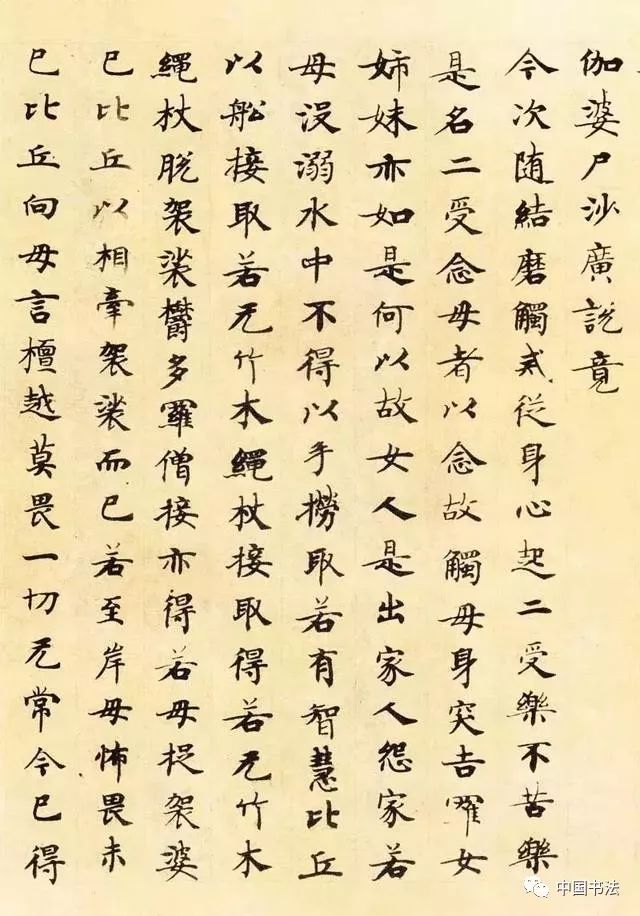 伽婆尸沙廣說竟
今次随結磨觸戒從身心起二受樂不苦樂
是名二受念母者以念故觸母身突吉羅女
姉妹亦如是何以故女人是出家人怨家若
母没溺水中不得以手撈取若有智慧比丘
以舩接取若无竹木繩杖接取得若无竹木
繩杖脱袈裟欝多羅僧接亦得若母捉袈婆
已比丘以相牽袈裟而已若至岸母怖畏未
已比丘向母言檀越莫畏一切无常今已得
中国书法